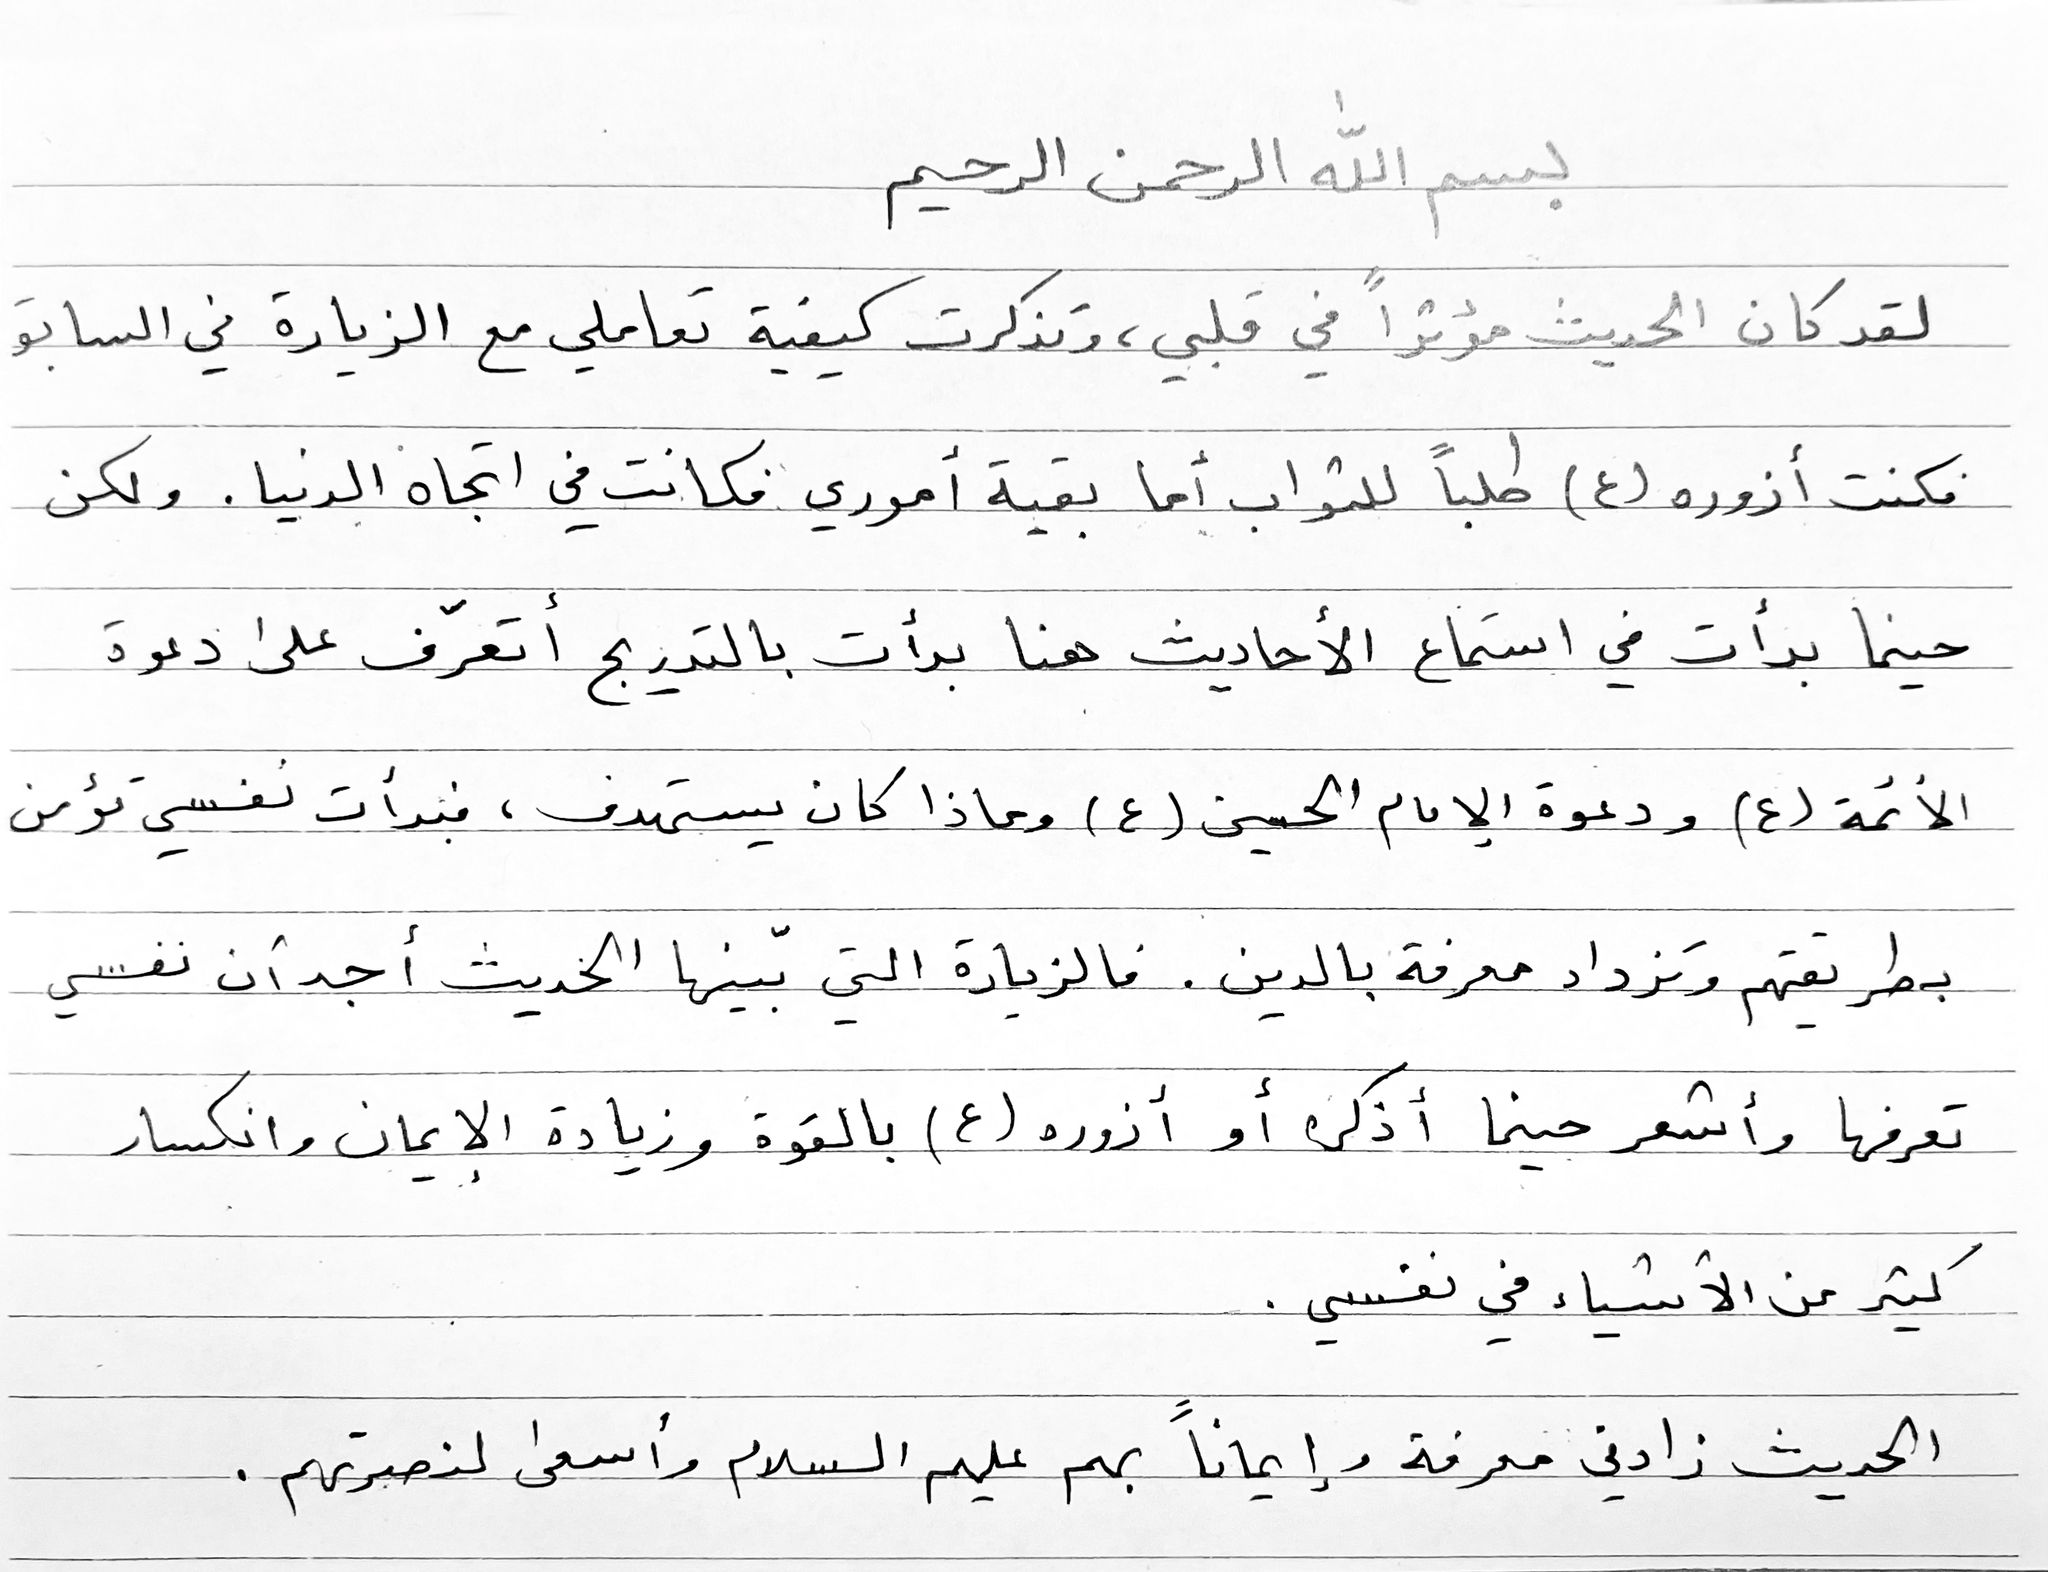 بسم الله الرحمن الرحيم
لقد كان الحديث مؤثراً في قلبي، وتذكرت كيفية تعاملي مع الزيارة في السابق
فكنت أزوره (ع) طلباً للثواب أما بقية أموري فكانت في اتجاه الدنيا. ولكن
حينما بدأت في استماع الأحاديث هنا بدأت بالتدريج أتعرّف على دعوة
الأئمة (ع) ودعوة الإمام الحسين (ع) وماذا كان يستهدف، فبدأت نفسي تؤمن
بطريقتهم وتزداد معرفة بالدين. فالزيارة التي بّينها الحديث أجد أن نفسي
تعرفها وأشعر حينما أذكره أو أزوره (ع) بالقوة وزيادة الإيمان وانكسار
كثير من الأشياء في نفسي.
الحديث زادني معرفة وإيماناً بهم عليهم السلام وأسعى لنصرتهم.